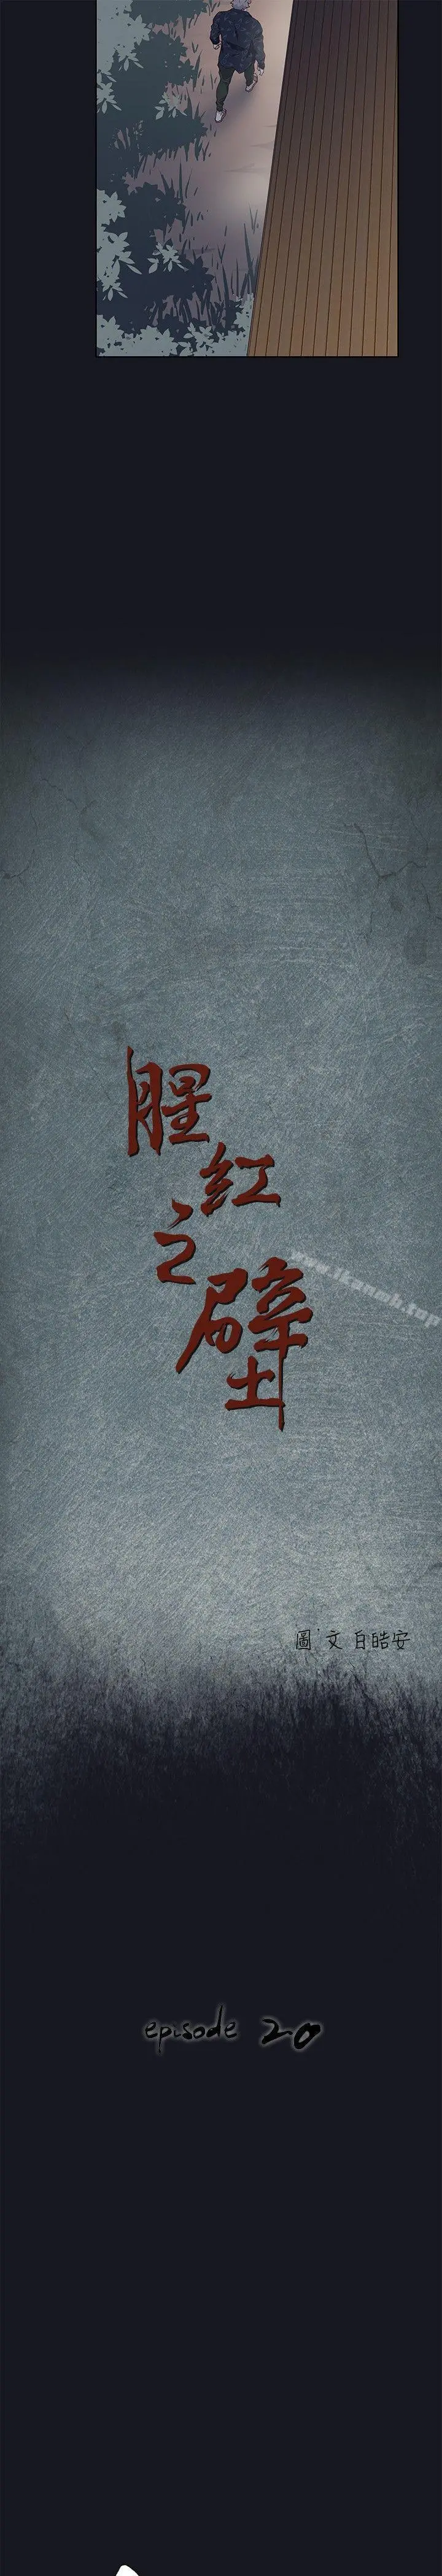 腥
紅
之
壁
www.ikanmh.top
圖、文 白皓安
episode 20